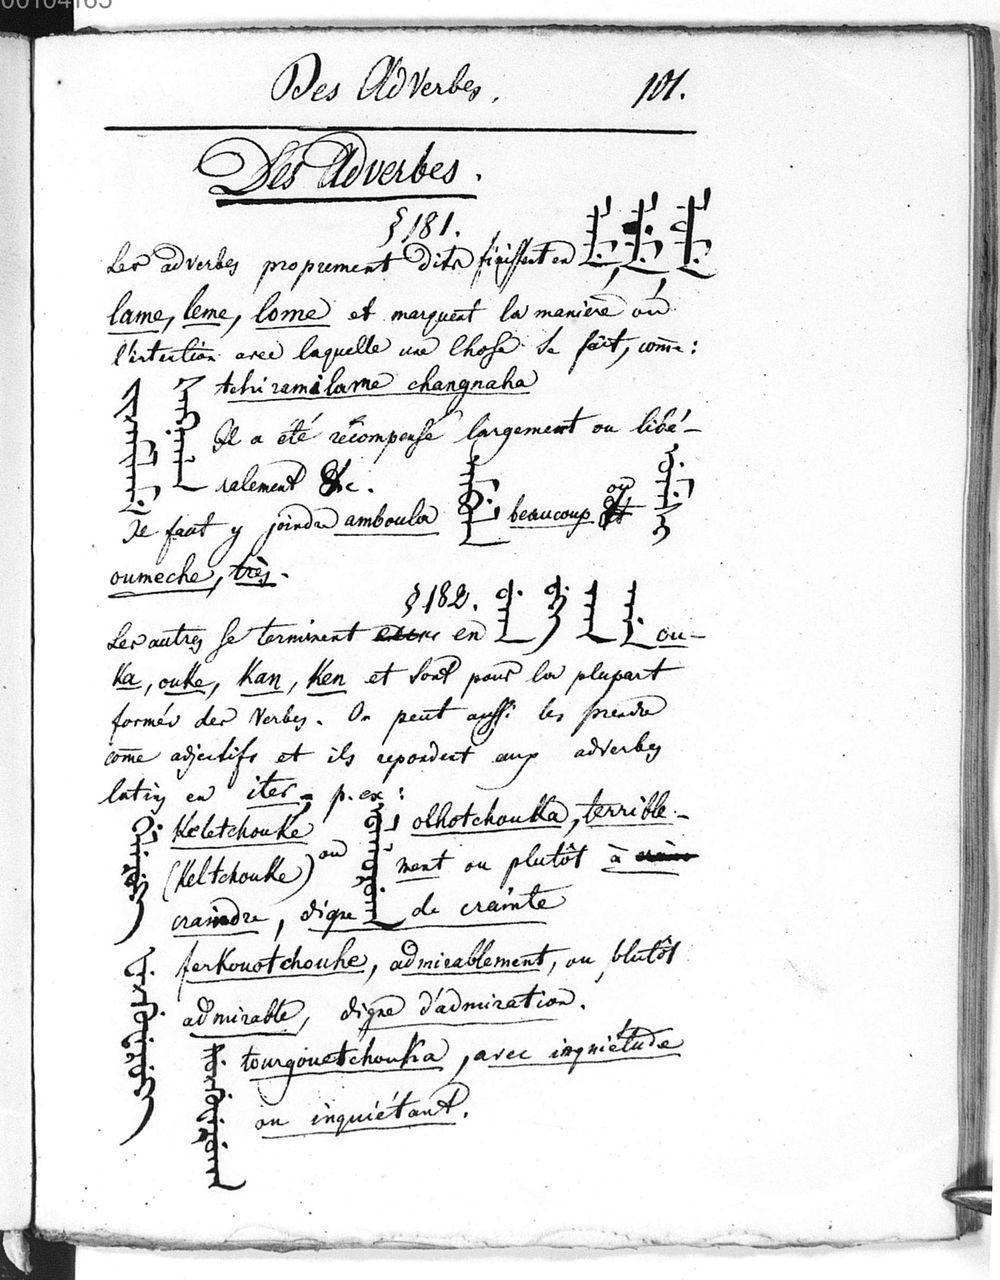 00104165
Des Adverbes. 101.
Des Adverbes.
§ 181.
Les adverbes proprement dits finissent en
lame, leme, lome et marquent la maniere ou
l'intention avec laquelle une chose se fait, come:
tchiramilame changnaha
Il a été récompensé largement ou libé-
ralement &c.
Je faut y joindre amboula beaucoup ou
oumeche, très.
§ 182.
Les autres se terminent en ou-
ka, ouke, kan, ken et sont pour la plupart
formés des Verbes. On peut aussi les prendre
come adjectifs et ils repondent aux adverbes
latins en iter, p. ex:
Keletchouke
(Keltchouke) ou olhotchouka, terrible-
ment ou plutôt à
craindre, digne de crainte
ferkouotchouke, admirablement, ou plutôt
admirable, digne d'admiration.
tourgouetchouka, avec inquiétude
ou inquiétant.